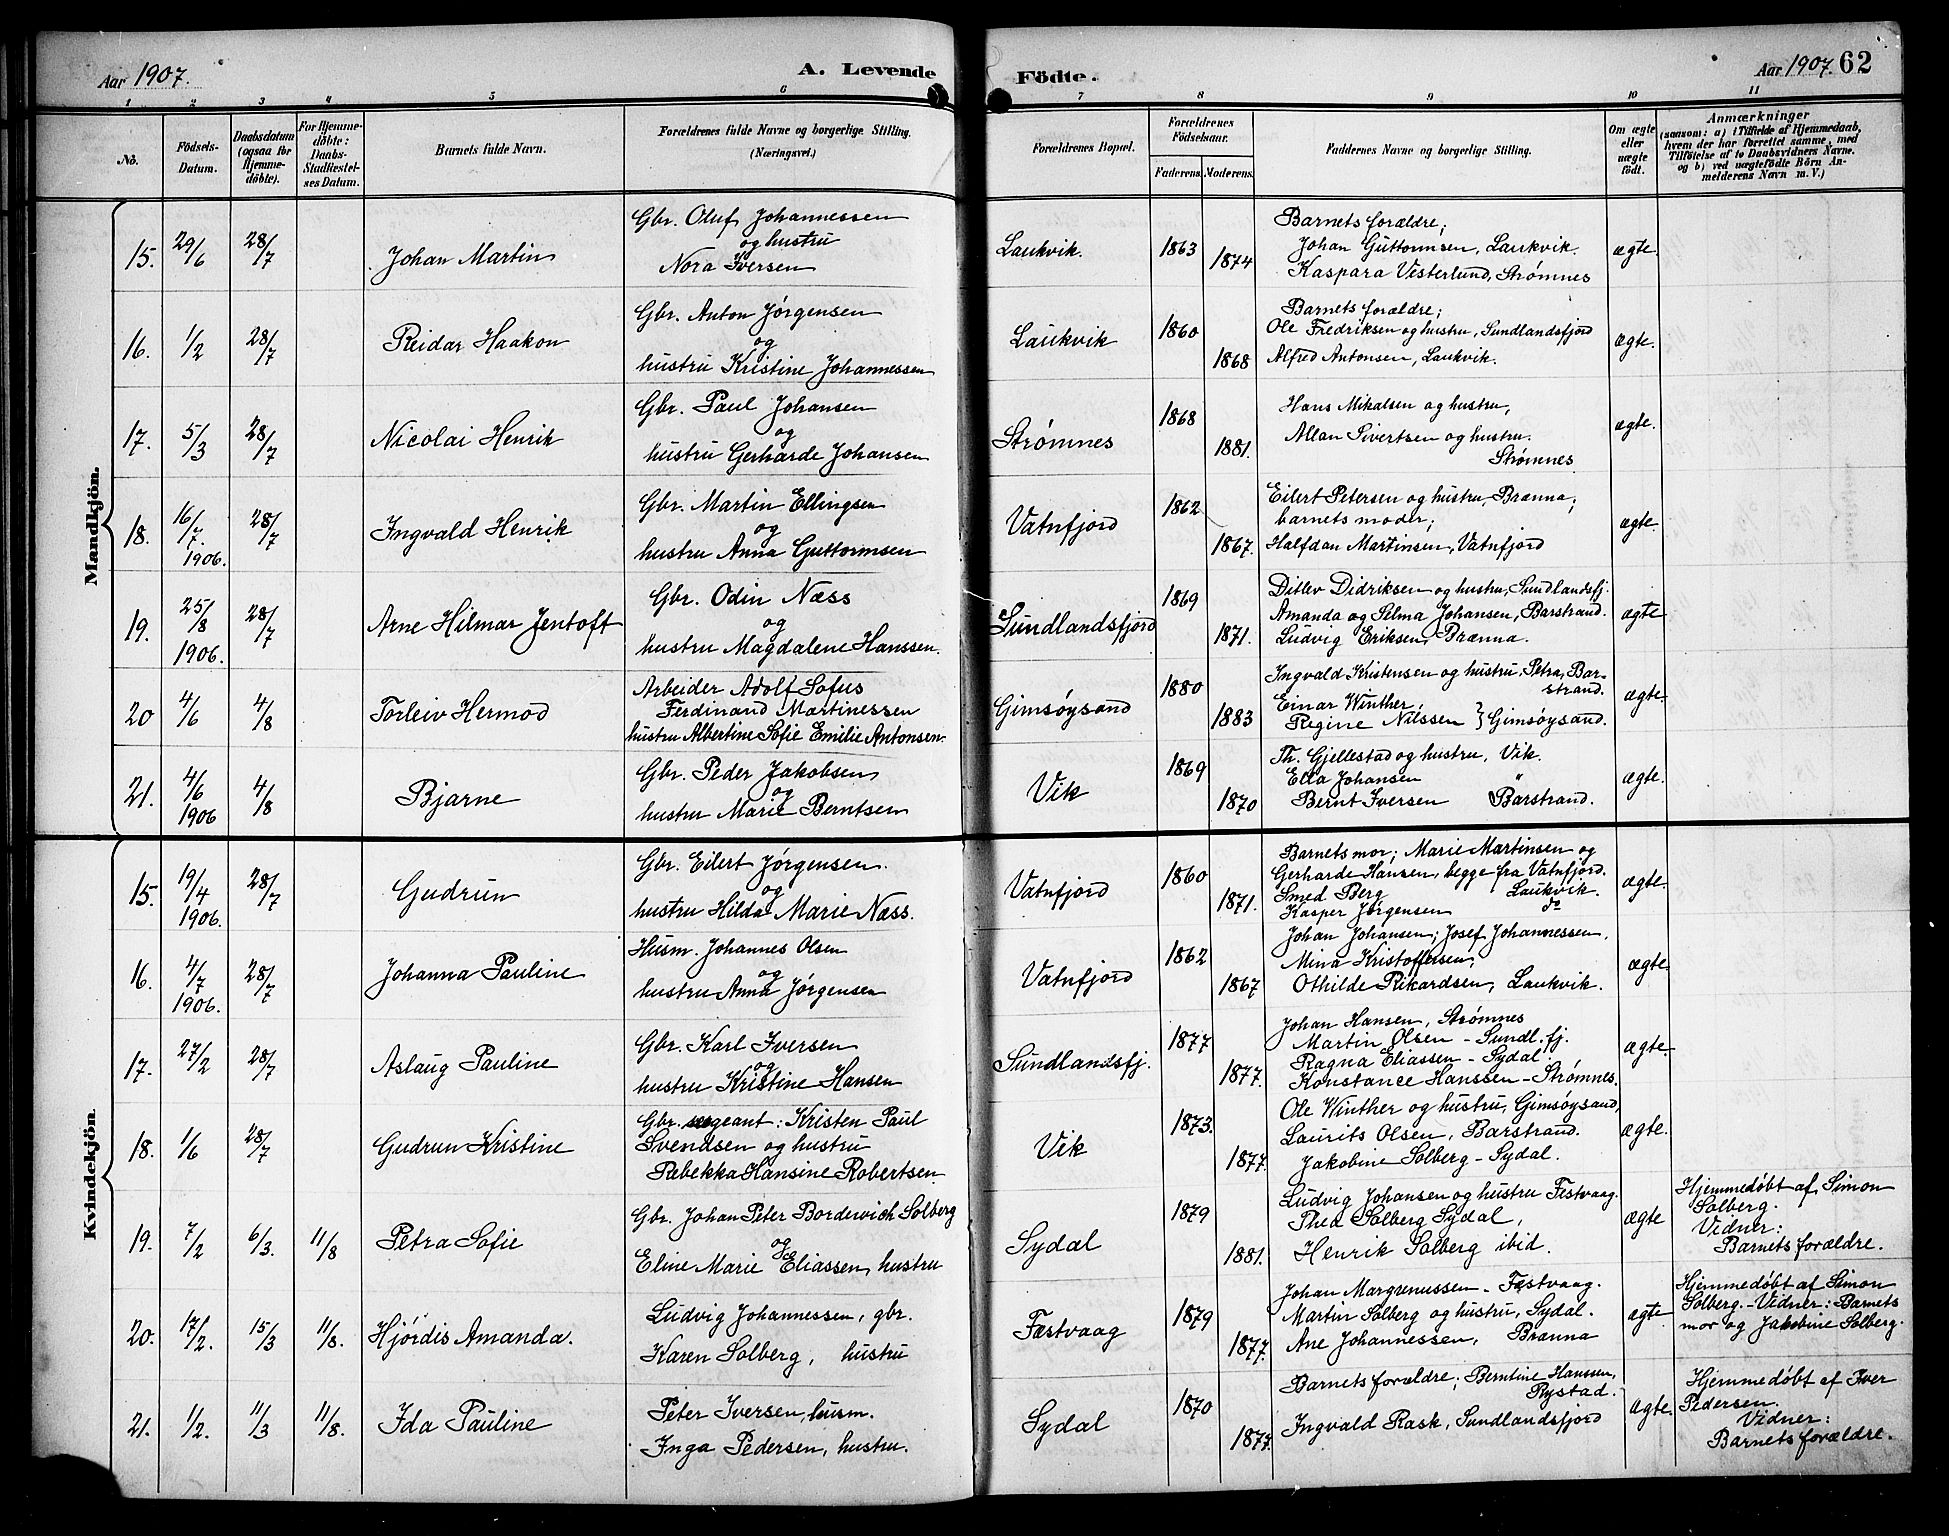 Aar 1907. A. Levende Födte. Aar 1907. 62
1 2 3 4 5 6 7 8 9 10 11
No. Födsels-Datum. Daabsdatum (ogsaa for Hjemme-döbte). For Hjemme-döbte: Daabs-Stadfæstel-ses Datum. Barnets fulde Navn. Forældrenes fulde Navne og borgerlige Stilling. (Næringsvei.) Forældrenes Bopæl. Forældrenes Födselsaar. Faderens. Moderens. Faddernes Navne og borgerlige Stilling. Om ægte eller uægte födt. Anmærkninger (saasom: a) i Tilfælde af Hjemmedaab, hvem der har forrettet samme, med Tilföielse af to Daabsvidners Navne. og b) ved uægtefödte Börn An-melderens Navn m. V.)
Mandkjön.
15. 29/6 28/7 Johan Martin
Gbr. Oluf Johannessen
og hustru
Nora Iversen
Laukvik. 1863 1874
Barnets forældre;
Johan Guttormsen, Laukvik.
Kaspara Vesterlund, Strømnes
ægte.
16. 1/2 28/7 Reidar Haakon
Gbr. Anton Jörgensen
og
hustru Kristine Johannessen
Laukvik 1860 1868
Barnets forældre;
Ole Fredriksen og hustru, Sundlandsfjord
Alfred Antonsen, Laukvik.
ægte.
17. 5/3 28/7 Nicolai Henrik
Gbr. Paul Johansen
og
hustru Gerharde Johansen
Strømnes 1868 1881.
Hans Mikalsen og hustru,
Allan Sivertsen og hustru.
Strømnes
ægte.
18. 16/7 1906. 28/7 Ingvald Henrik
Gbr. Martin Ellingsen
og
hustru Anna Guttormsen
Vatnfjord 1862 1867.
Eilert Petersen og hustru, Brænna;
barnets moder;
Halfdan Martinsen, Vatnfjord
ægte.
19. 25/8 1906. 28/7 Arne Hilmar Jentoft
Gbr. Odin Næss
og
hustru Magdalene Hanssen.
Sundlandsfjord 1869 1871.
Ditlev Didriksen og hustru, Sundlandsfj.
Amanda og Selma Johansen, Barstrand.
Ludvig Eriksen, Brænna.
ægte
20 4/6 4/8 Torleiv Hermod
Arbeider Adolf Sofus
Ferdinand Martinessen
hustru Albertine Sofie Emilie Antonsen.
Gimsøysand 1880 1883
Ingvald Kristensen og hustru, Petra, Bar-
strand.
Einar Winther,
Regine Nilssen } Gimsøysand.
ægte.
21. 4/6 1906 4/8 Bjarne
Gbr. Peder Jakobsen
og
hustru Marie Berntsen
Vik 1869 1870
Th. Gjellestad og hustru, Vik.
Ella Johansen "
Bernt Iversen Barstrand.
ægte.
Kvindekjön.
15. 19/4 1906. 28/7 Gudrun
Gbr. Eilert Jörgensen.
og
hustru Hilda Marie Næss.
Vatnfjord 1860 1871.
Barnets mor; Marie Martinsen og
Gerharde Hansen, begge fra Vatnfjord.
Smed Berg Laukvik.
Kasper Jörgensen do
ægte.
16. 4/7 1906. 28/7 Johanna Pauline
Husm. Johannes Olsen
og
hustru Anna Jörgensen
Vatnfjord 1862 1867
Johan Johansen; Josef Johannessen,
Mina Kristoffersen;
Othilde Rikardsen, Laukvik.
ægte.
17. 27/2 28/7 Aslaug Pauline
Gbr. Karl Iversen
og
hustru Kristine Hansen
Sundlandsfj. 1877 1877.
Johan Hansen, Strømnes
Martin Olsen - Sundl. fj.
Ragna Eliassen - Sydal.
Konstance Hanssen - Strømnes.
ægte.
18. 1/6 28/7 Gudrun Kristine
Gbr. sergeant: Kristen Paul
Svendsen og hustru
Rebekka Hansine Robertsen
Vik 1873. 1877.
Ole Winther og hustru, Gimsøysand,
Laurits Olsen, Barstrand.
Jakobine Solberg - Sydal.
ægte.
19. 7/2 6/3. 11/8 Petra Sofie
Gbr. Johan Peter Bordewich Solberg
og
Eline Marie Eliassen, hustru
Sydal 1879 1881.
Ludvig Johansen og hustru Festvaag.
Thea Solberg Sydal,
Henrik Solberg ibid.
ægte
Hjemmedøbt af Simon
Solberg.
Vidner:
Barnets forældre.
20. 17/2. 15/3 11/8. Hjördis Amanda.
Ludvig Johannessen, gbr.
Karen Solberg, hustru
Fæstvaag 1879 1877.
Johan Margrenussen - Fæstvaag.
Martin Solberg og hustru, Sydal.
Ane Johannessen, Brænna
ægte.
Hjemmedøbt af Simon
Solberg. - Vidner: Barnets
mor og Jakobine Solberg.
21. 1/2. 11/3 11/8. Ida Pauline
Peter Iversen, husm.
Inga Pedersen, hustru.
Sydal 1870 1877.
Barnets forældre; Berntine Hanssen,
Rystad.
Ingvald Rask, Sundlandsfjord
ægte.
Hjemmedøbt af Iver
Pedersen.
Vidner:
Barnets forældre.